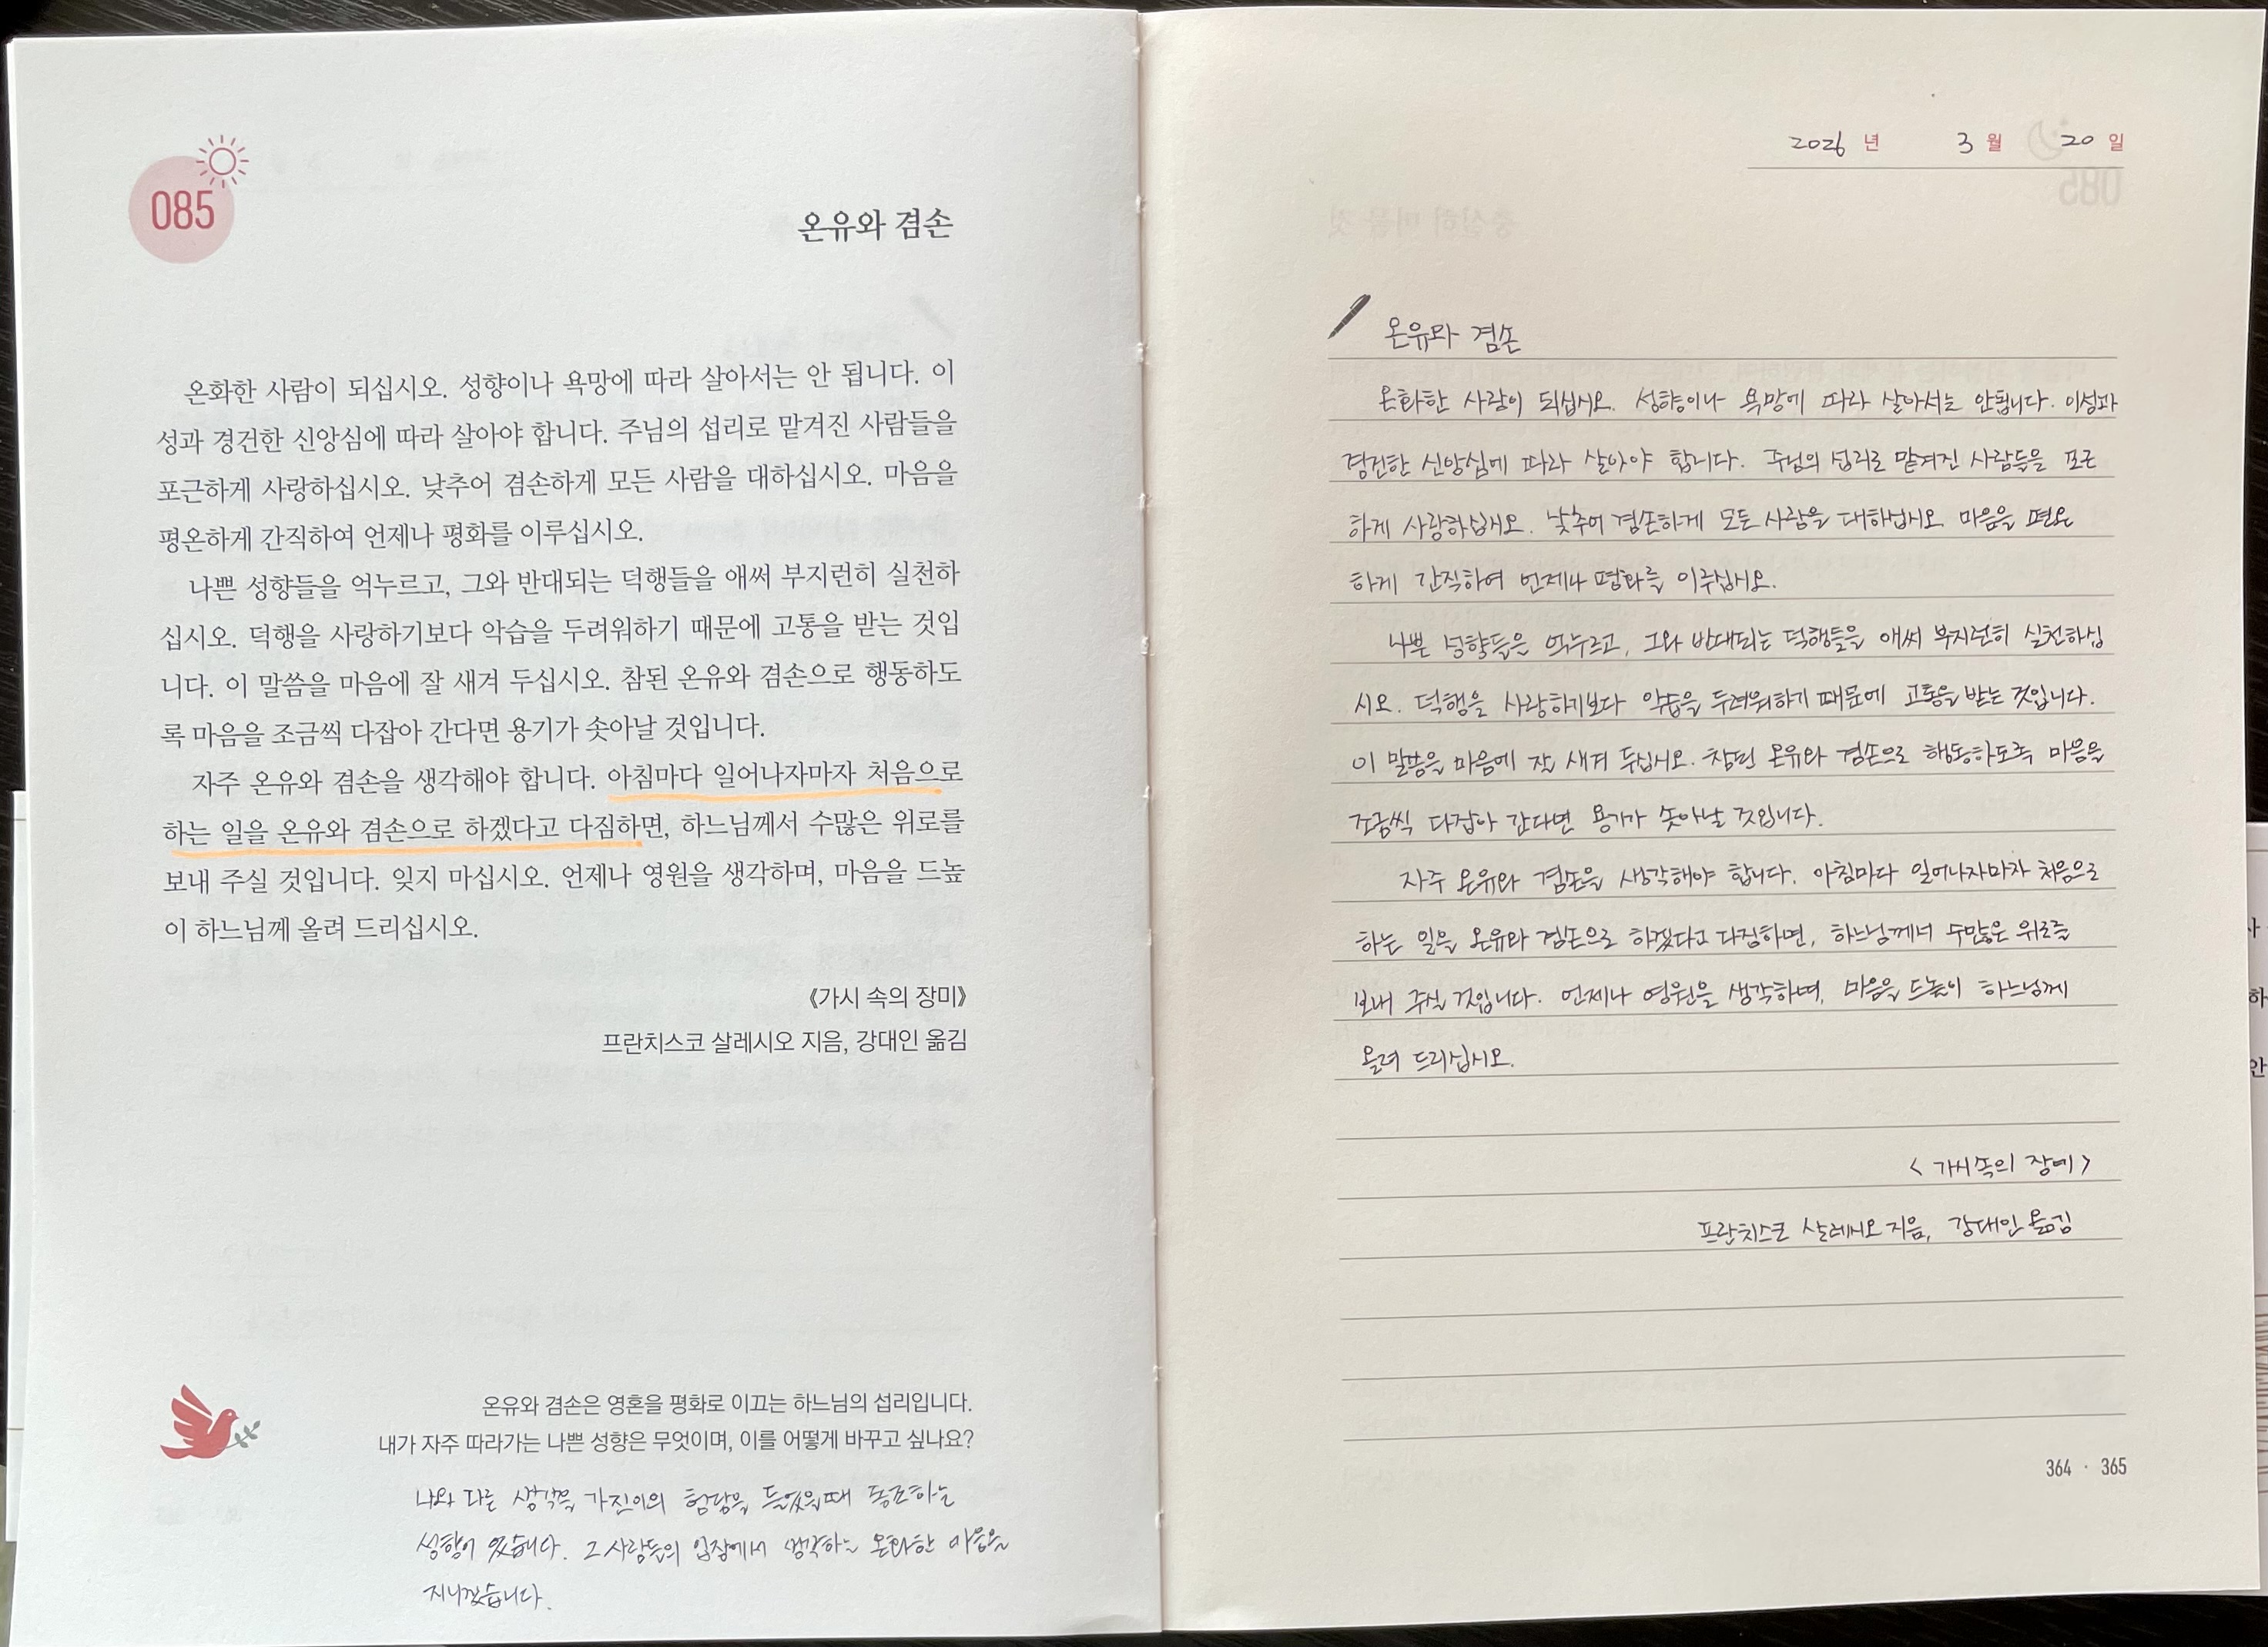 085
온유와 겸손
온화한 사람이 되십시오. 성향이나 욕망에 따라 살아서는 안 됩니다. 이
성과 경건한 신앙심에 따라 살아야 합니다. 주님의 섭리로 맡겨진 사람들을
포근하게 사랑하십시오. 낮추어 겸손하게 모든 사람을 대하십시오. 마음을
평온하게 간직하여 언제나 평화를 이루십시오.
나쁜 성향들을 억누르고, 그와 반대되는 덕행들을 애써 부지런히 실천하
십시오. 덕행을 사랑하기보다 악습을 두려워하기 때문에 고통을 받는 것입
니다. 이 말씀을 마음에 잘 새겨 두십시오. 참된 온유와 겸손으로 행동하도
록 마음을 조금씩 다잡아 간다면 용기가 솟아날 것입니다.
자주 온유와 겸손을 생각해야 합니다. 아침마다 일어나자마자 처음으로
하는 일을 온유와 겸손으로 하겠다고 다짐하면, 하느님께서 수많은 위로를
보내 주실 것입니다. 잊지 마십시오. 언제나 영원을 생각하며, 마음을 드높
이 하느님께 올려 드리십시오.
《가시 속의 장미》
프란치스코 살레시오 지음, 강대인 옮김
온유와 겸손은 영혼을 평화로 이끄는 하느님의 섭리입니다.
내가 자주 따라가는 나쁜 성향은 무엇이며, 이를 어떻게 바꾸고 싶나요?
나와 다른 생각을 가진이의 험담을 들었을때 동조하는
성향이 있습니다. 그사람들의 입장에서 생각하는 온화한 마음을
지니겠습니다.
2026 년 3 월 20 일
온유와 겸손
온화한 사람이 되십시오. 성향이나 욕망에 따라 살아서는 안됩니다. 이성과
경건한 신앙심에 따라 살아야 합니다. 주님의 섭리로 맡겨진 사람들을 포근
하게 사랑하십시오. 낮추어 겸손하게 모든 사람을 대하십시오. 마음을 평온
하게 간직하여 언제나 평화를 이루십시오.
나쁜 성향들은 억누르고, 그와 반대되는 덕행들을 애써 부지런히 실천하십
시오. 덕행을 사랑하기보다 악습을 두려워하기 때문에 고통을 받는 것입니다.
이 말씀을 마음에 잘 새겨 두십시오. 참된 온유와 겸손으로 행동하도록 마음을
조금씩 다잡아 간다면 용기가 솟아날 것입니다.
자주 온유와 겸손을 생각해야 합니다. 아침마다 일어나자마자 처음으로
하는 일을 온유와 겸손으로 하겠다고 다짐하면, 하느님께서 수많은 위로를
보내 주실 것입니다. 언제나 영원을 생각하며, 마음을 드높이 하느님께
올려 드리십시오.
< 가시속의 장미 >
프란치스코 살레시오 지음, 강대인 옮김
364 · 365